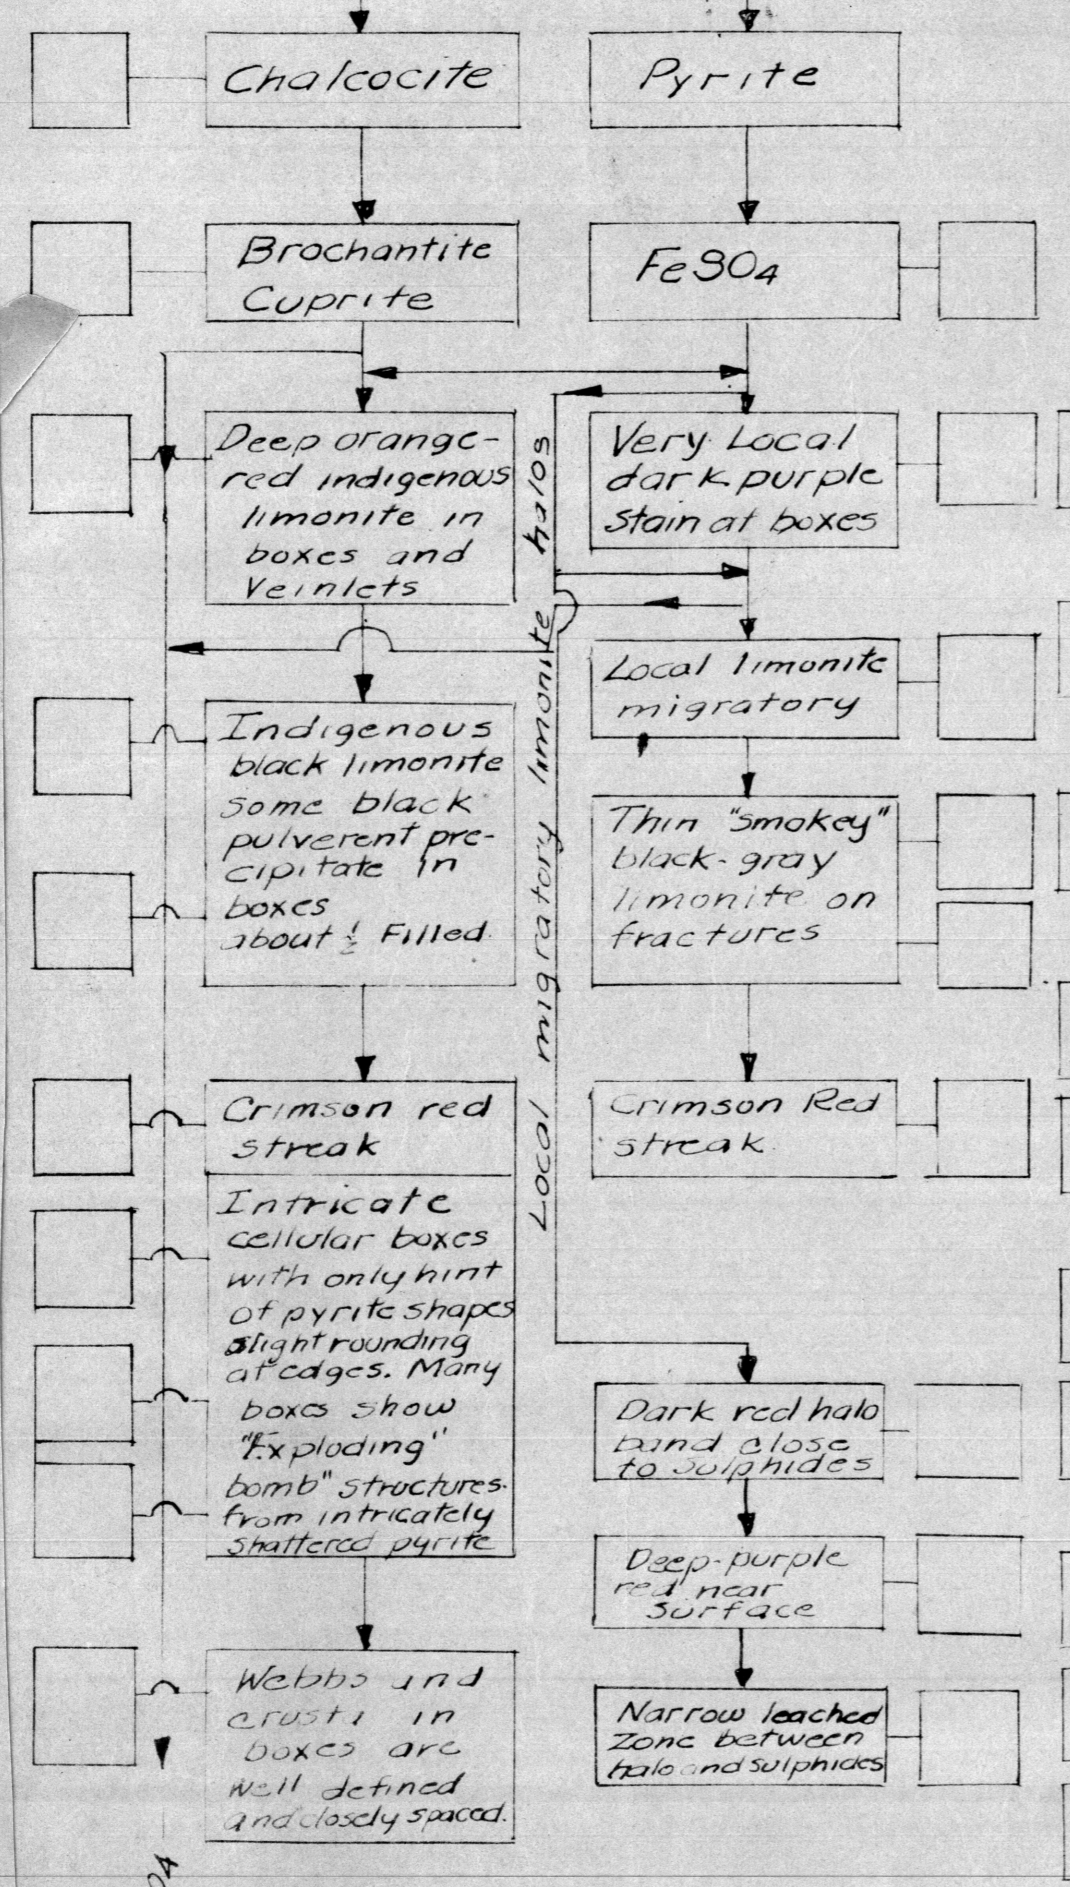 Chalcocite
Brochantite
Cuprite
Deep orange-
red indigenous
limonite in
boxes and
Veinlets
Indigenous
black limonite
some black
pulverent pre-
cipitate in
boxes
about ½ Filled.
Crimson red
streak
Intricate
cellular boxes
with only hint
of pyrite shapes
slight rounding
at edges. Many
boxes show
"Exploding"
bomb" structures.
from intricately
shattered pyrite
Webbs and
crusts in
boxes are
well defined
and closely spaced.
Local migratory limonite halos
Pyrite
FeSO4
Very Local
dark purple
stain at boxes
Local limonite
migratory
Thin "smokey"
black-gray
limonite on
fractures
Crimson Red
streak
Dark red halo
band close
to sulphides
Deep-purple
red near
surface
Narrow leached
zone between
halo and sulphides